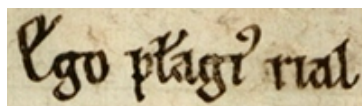 Ego pelagiꝰ rial